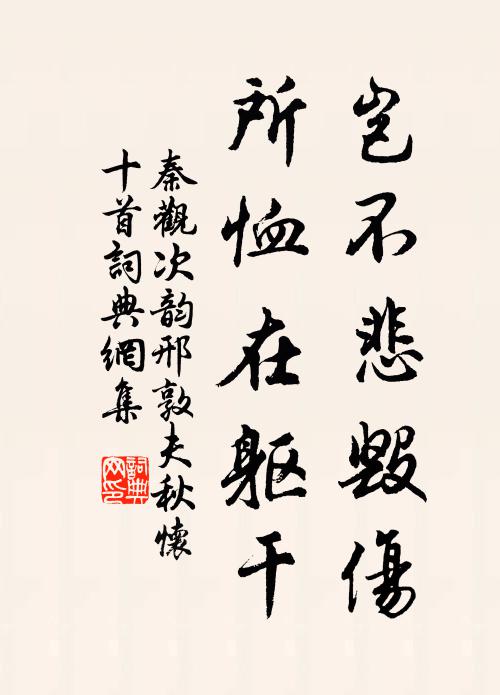 豈不悲毀傷
所恤在軀干
秦觀次韵邢敦夫秋懷
十首詞典網集
詞典
网印